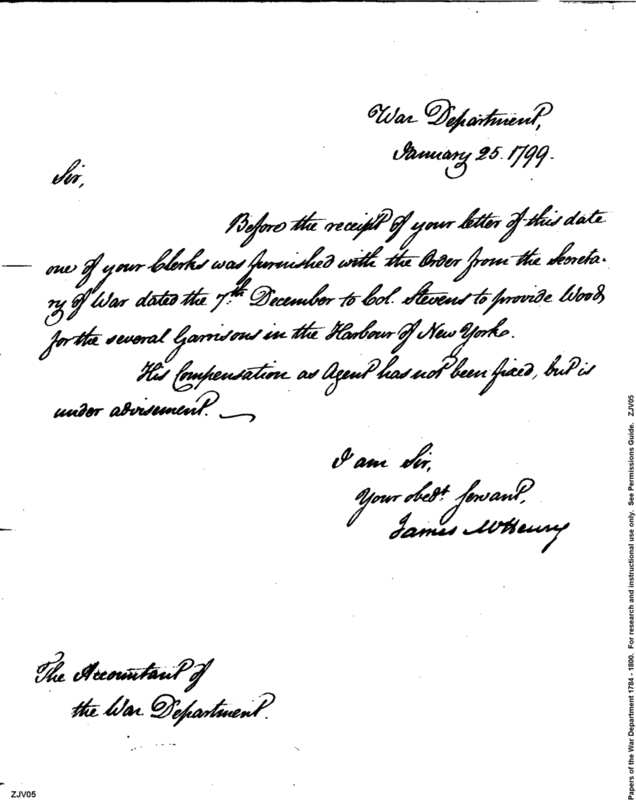 War Department,
January 25. 1799.
Sir,
Before the receipt of your letter of this date
one of your Clerks was furnished with the Order from the Secreta-
ry of War dated the 7th. December to Col. Stevens to provide Wood
for the several Garrisons in the Harbour of New York.
His Compensation as Agent has not been fixed, but is
under advisement.
I am Sir,
Your obedt. servant,
James McHenry
The Accountant of
the War Department.
ZJV05
Papers of the War Department 1784 - 1800. For research and instructional use only. See Permissions Guide. ZJV05